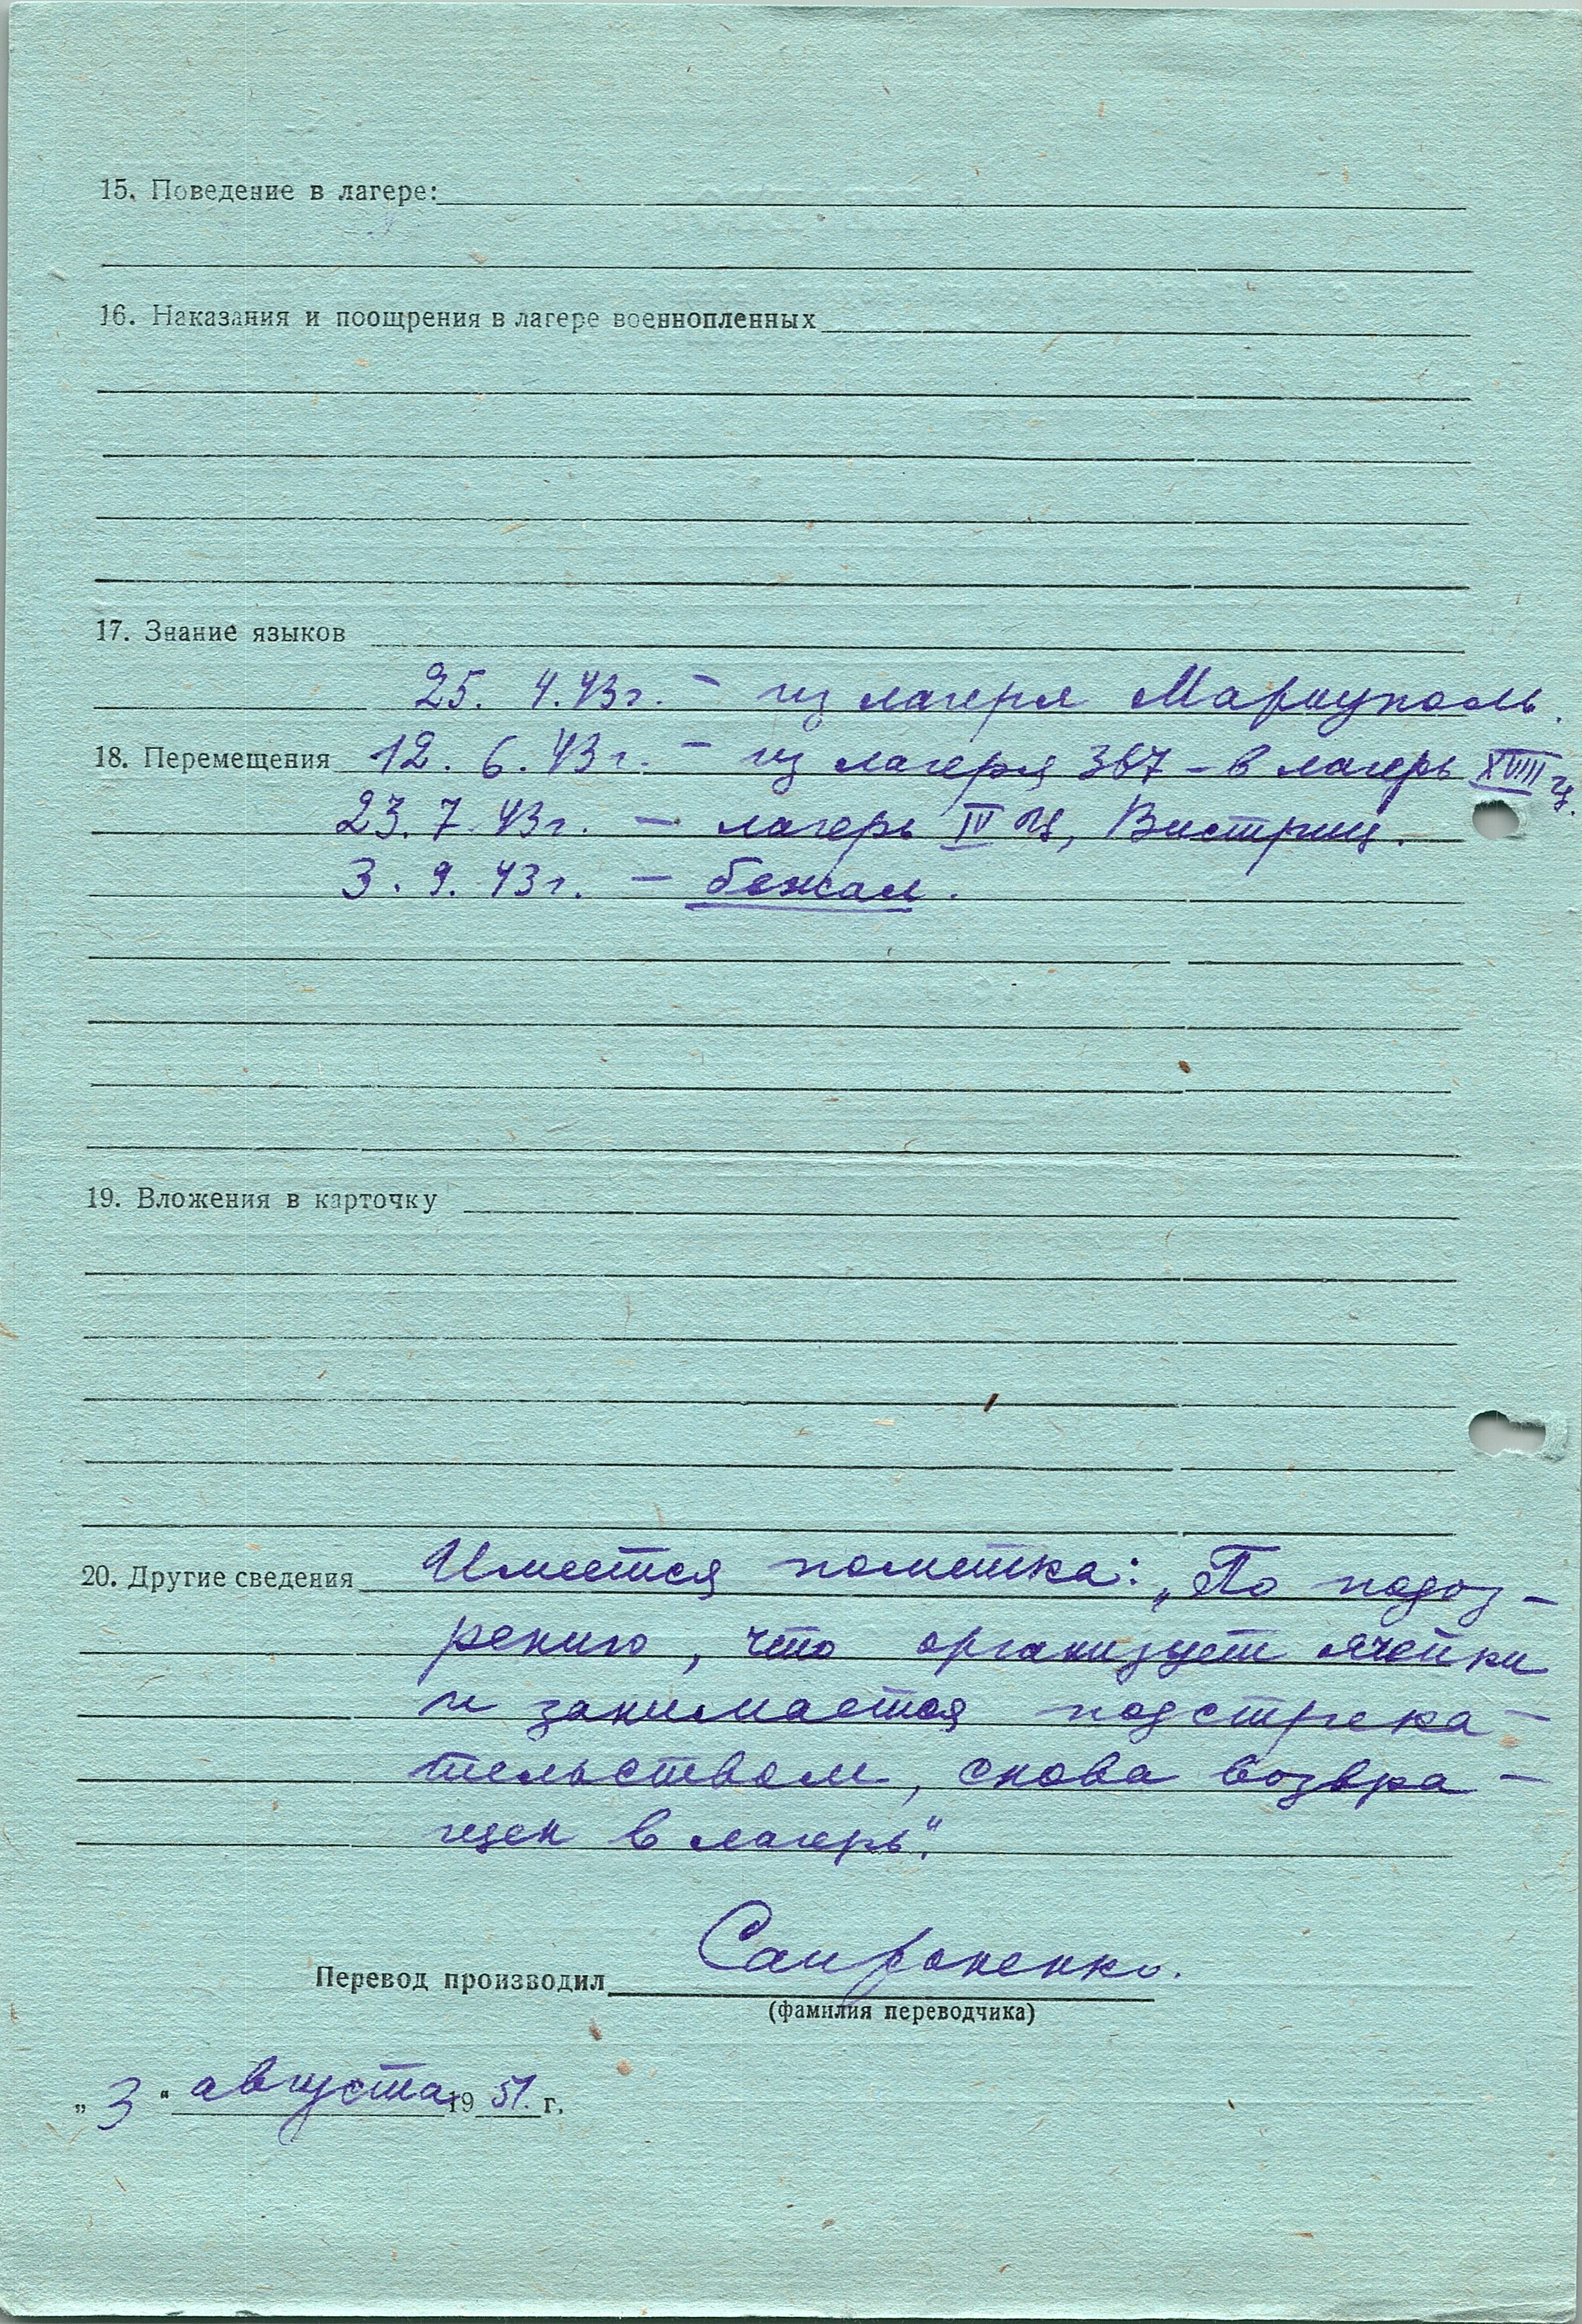 15. Поведение в лагере:
16. Наказания и поощрения в лагере военнопленных
17. Знание языков
25. 4. 43 г. – из лагеря Мариуполь.
18. Перемещения 12. 6. 43 г. – из лагеря 367 – в лагерь XVIII Ц.
23. 7. 43 г. – лагерь IV Ц, Вистриц.
3. 9. 43 г. – бежал.
19. Вложения в карточку
20. Другие сведения Имеется пометка: „По подоз-
рению, что организует ячейки
и занимается подстрека-
тельством, снова возвра-
щен в лагерь".
Перевод производил
(фамилия переводчика)
„3" августа 1951. г.